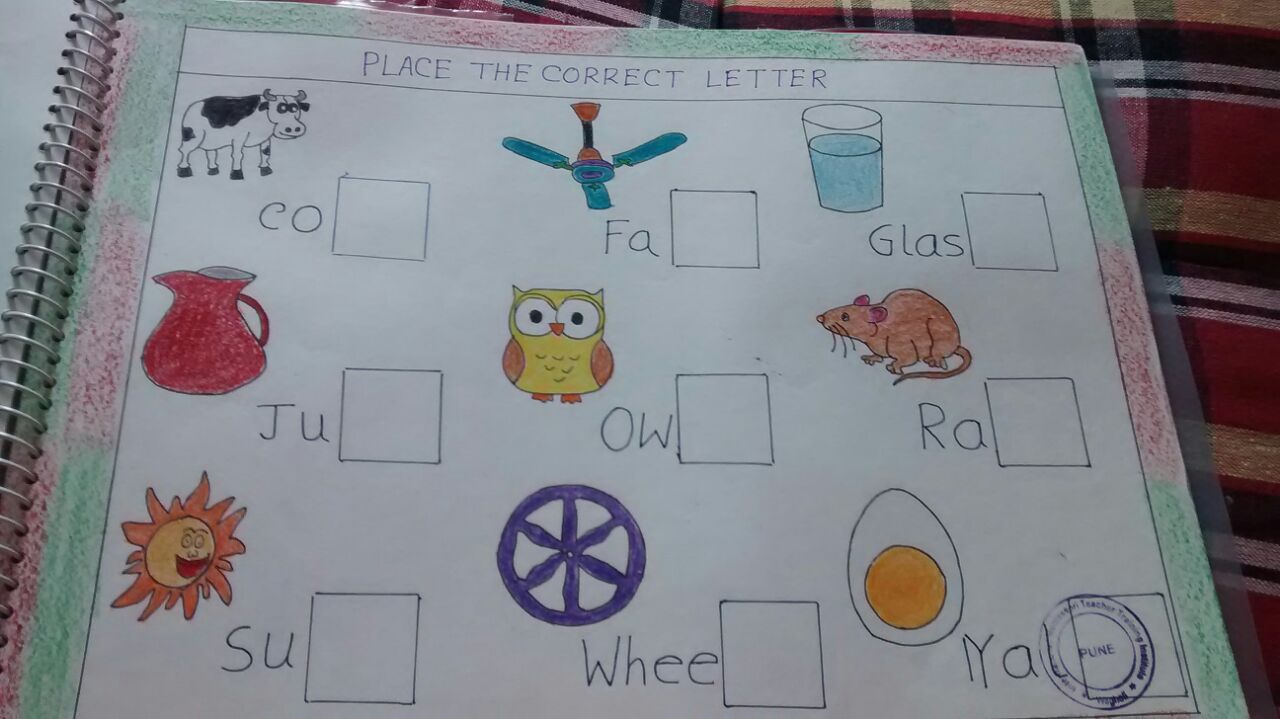 PLACE THE CORRECT LETTER
CO
Fa
Glas
Ju
OW
Ra
Su
Whee
Ya
Teacher Training
PUNE
Wagholi